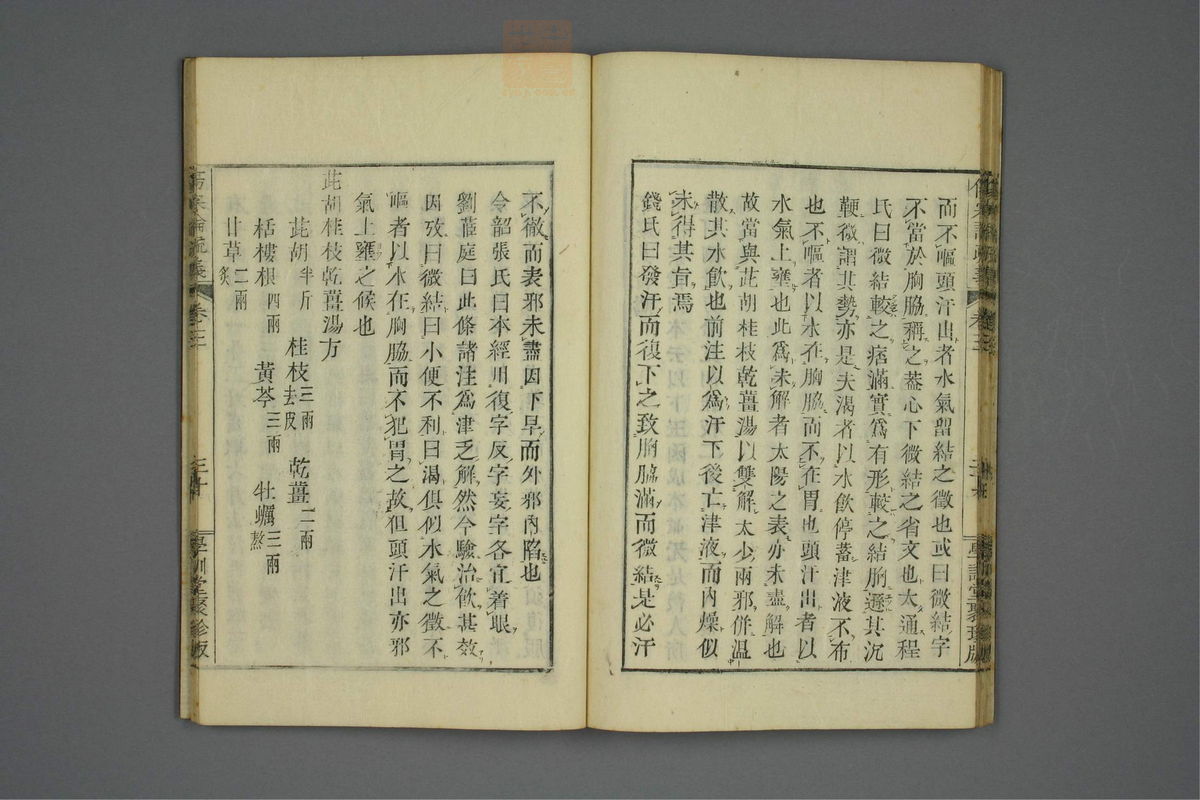 而不嘔頭汗出者水氣留結之徵也或曰微結字
不當於胸脇稱之葢心下微結之省文也太通程
氏曰微結較之痞滿實爲有形較之結胸遜其沉
鞕微謂其勢亦是夫渴者以水飮停蓄津液不布
也不嘔者以水在胸脇而不在胃也頭汗出者以
水氣上壅也此爲未解者太陽之表亦未盡解也
故當與茈胡桂枝乾薑湯以雙解太少兩邪併溫
散其水飮也前注以爲汗下後亡津液而内燥似
未得其旨焉
錢氏曰發汗而復下之致胸脇滿而微結是必汗
學訓堂聚珍版
不徹而表邪未盡因下早而外邪内陷也
令韶張氏曰本經用復字反字妄字各宜着眼
劉茝庭曰此條諸注爲津乏解然今驗治飮甚效
因攷曰微結曰小便不利曰渴俱似水氣之徵不
嘔者以水在胸脇而不犯胃之故但頭汗出亦邪
氣上壅之候也
茈胡桂枝乾薑湯方
茈胡半斤 桂枝三兩去皮 乾薑二兩
栝樓根四兩 黃芩三兩 牡蠣三兩熬
甘草二兩炙
傷寒論疏義 卷三 二十 學訓堂聚珍版